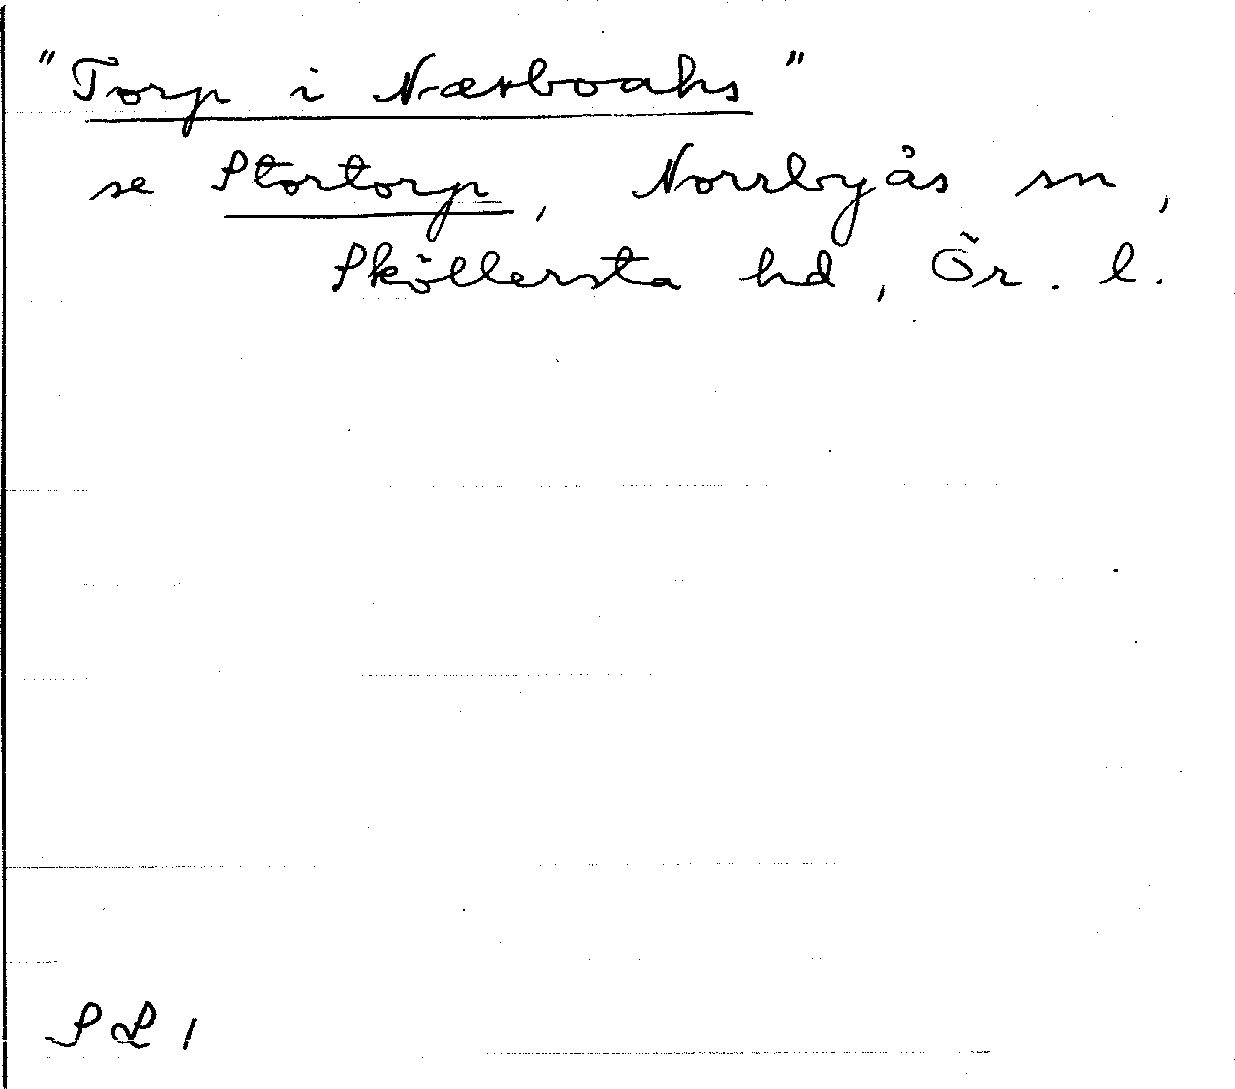 "Torp i Nærboahs"
se Stortorp, Norrbyås sn,
Sköllersta hd, Ör. l.